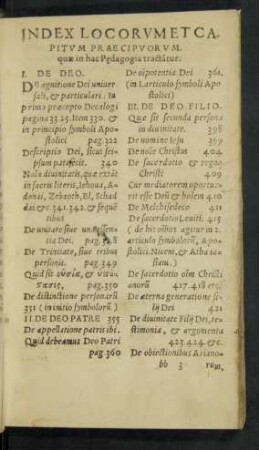 INDEX LOCORVM ET CA
PITVM PRAECIPVORVM.
quæ in hac Pædagogia tractātur.
I. DE DEO.
DE agnitione Dei univer
sali, & particulari. in
primo præcepto Decalogi
pagina 33.25. Item 330. &
in principio symboli Apo
stolici pag.322
Descriptio Dei, sicut se i
psum patefecit. 340
Notæ divinitatis, quæ extāt
in sacris literis, Iehoua, A
donai, Zebaoth, El, Schad
dai &c. 341.342. & seque
tibus
De unitate siue un essen
tia Dei. 348
De Trinitate, siue tribus
personis. pag.349
Quid sit οὐσία, & ὑπόϛα
350
De distinctione personarū
351 (in initio symbolorū)
II. DE DEO PATRE 355
De appellatione patris ibi.
Quid debeamus Deo Patri
pag.360
De oīpotentia Dei 361.
(in 1. articulo symboli Apo
stolici)
III. DE DEO FILIO.
Quæ sit secunda persona
in divinitate. 398
De nomine Iesu 399
De voce Christus 404
De sacerdotio & regno
Christi 409
Cur mediatorem oportue
rit esse Deū & hoīem 410
De Melchisedech 411
De sacerdotio Leuiti. 415
( de his oībus agitur in 2.
articulo symbolorū, Apo
stolici. Niceni, & Atha na
siani.)
De sacerdotio oīm Christi
anorū 417.418 etc.
De æterna generatione fi
lij Dei 421
De divinitate Filij Dei, te
stimonia, & argumenta
423.424. &c.
De obiectionibus Ariano-
bb 3 rum,